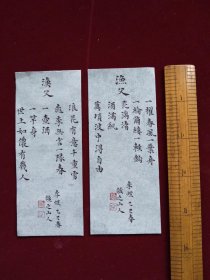 漁父
一櫂春風一葉舟
一綸繭縷一輕鉤
花滿渚
酒滿甌
萬頃波中得自由
李煜
山人
漁父
浪花有意千重雪
桃李無言一隊春
一壺酒
一竿身
世上如儂有幾人
李煜
山人